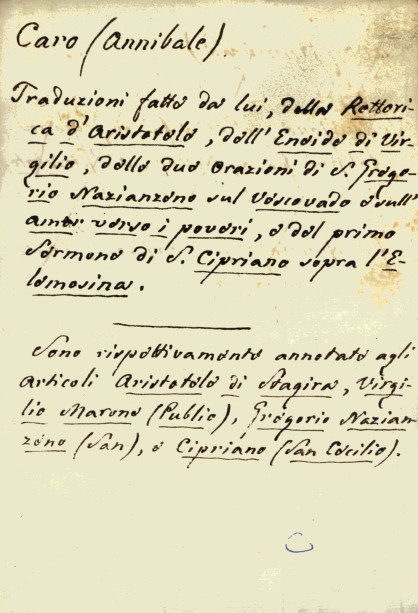 Caro (Annibale).
Traduzioni fatte da lui, della Rettori-
ca d'Aristotele, dell'Eneide di Vir-
gilio, delle due orazioni di S. Grego-
rio Nazianzeno sul Vescovado e sull'
amor verso i poveri, e del primo
Sermone di S. Cipriano sopra l'E-
lemosina.
Sono rispettivamente annotate agli
articoli Aristotele di Stagira, Virgi-
lio Marone (Publio), Gregorio Nazian-
zeno (San), e Cipriano (San Cecilio).